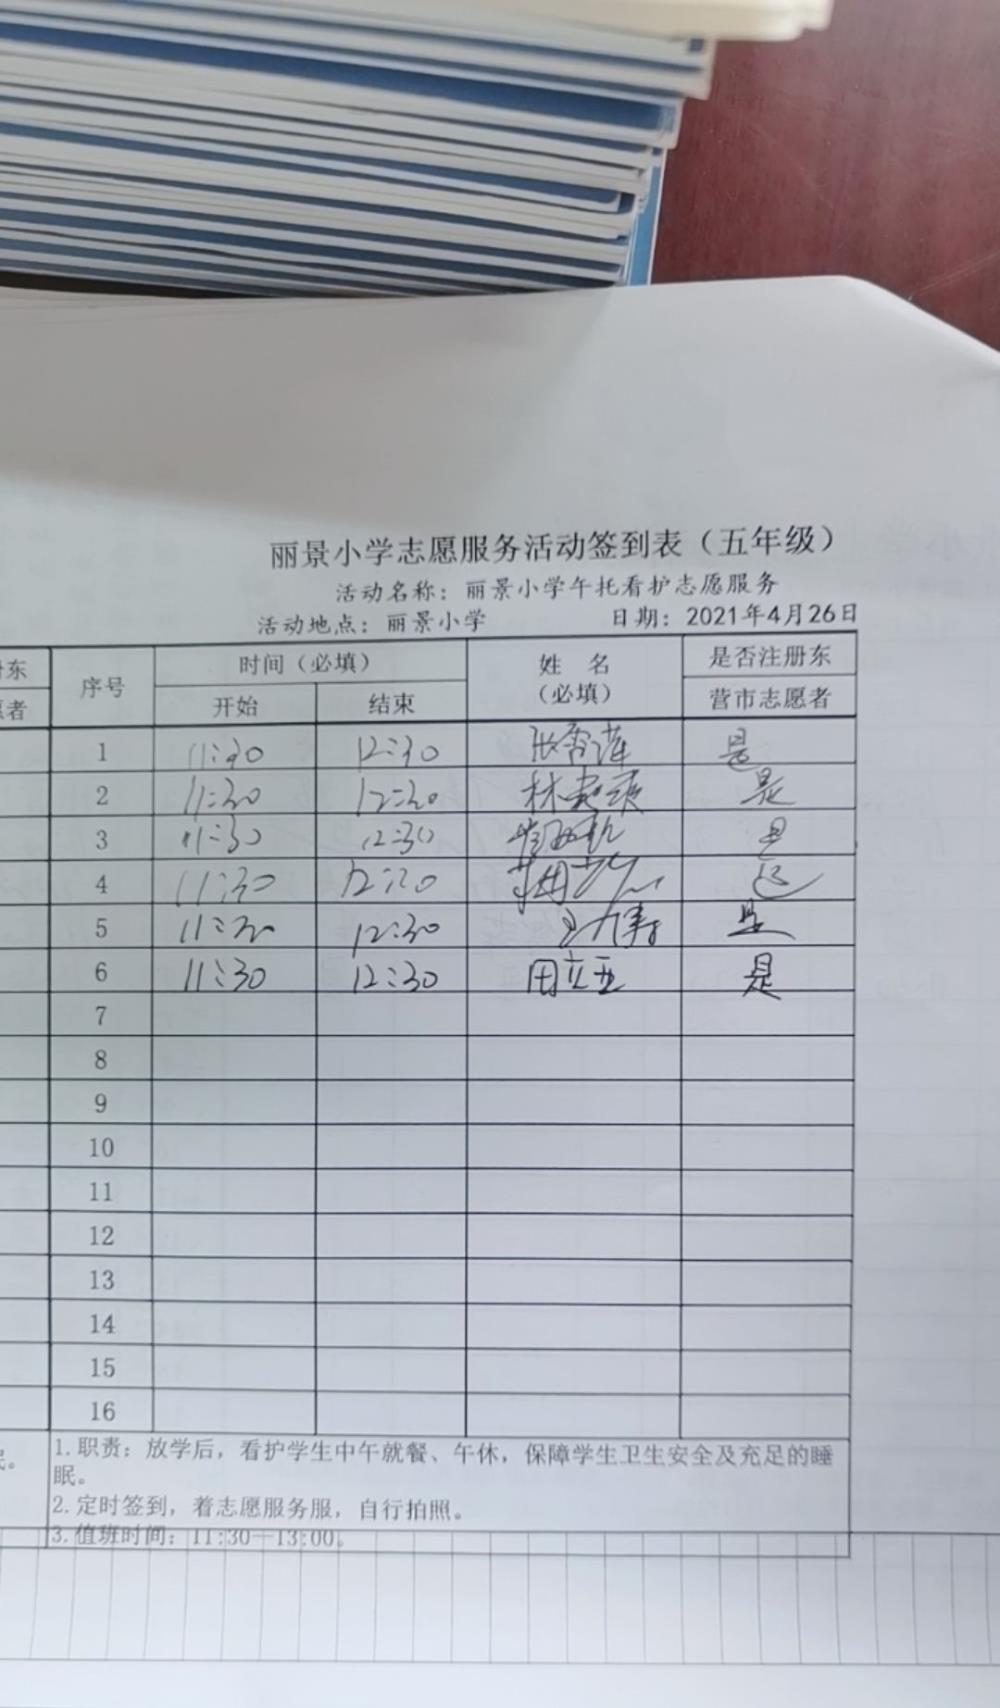 丽景小学志愿服务活动签到表（五年级）
活动名称：丽景小学午托看护志愿服务
活动地点：丽景小学 日期：2021年4月26日
册东 序号 时间（必填） 姓 名 是否注册东
愿者 开始 结束 （必填） 营市志愿者
1 11:30 12:30 张香萍 是
2 11:30 12:30 林 是
3 11:30 12:30 是
4 11:30 12:30 是
5 11:30 12:30 是
6 11:30 12:30 田立亚 是
7
8
9
10
11
12
13
14
15
16
1.职责：放学后，看护学生中午就餐、午休，保障学生卫生安全及充足的睡
眠。
2.定时签到，着志愿服务服，自行拍照。
3.值班时间：11:30—13:00。